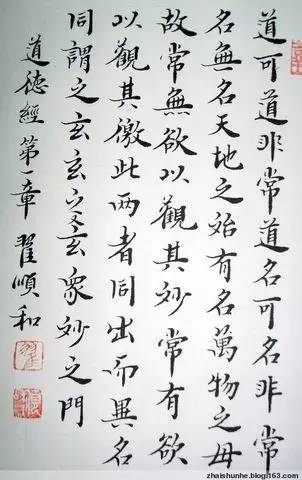 道可道非常道名可名非常
名無名天地之始有名萬物之母
故常無欲以觀其妙常有欲
以觀其徼此两者同出而異名
同謂之玄玄之又玄衆妙之門
道德經第一章 翟順和
zhaishunhe.blog.163.com